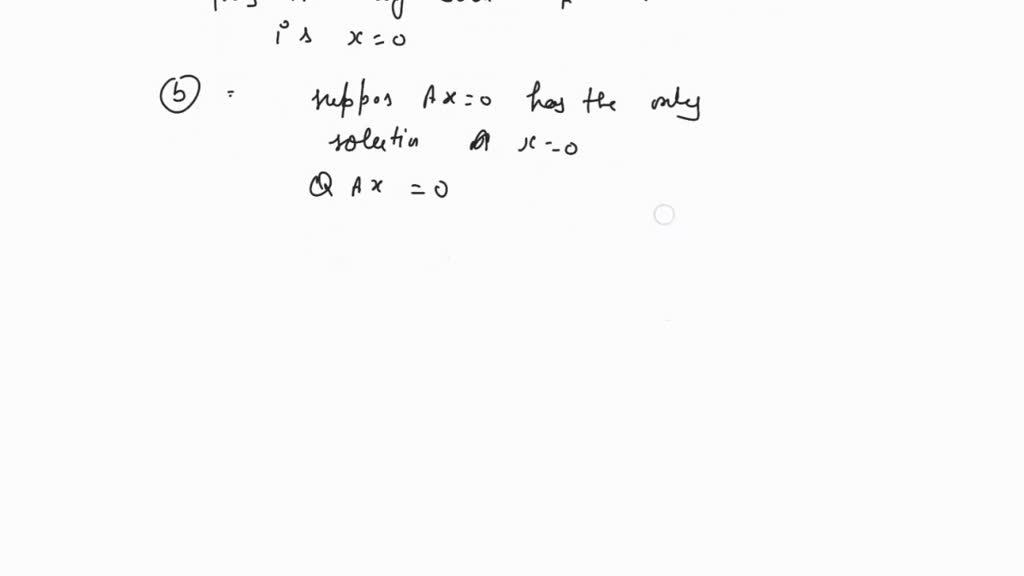 is x=0
(b) = suppos Ax=0 has the only
solutin x=0
Q Ax = 0